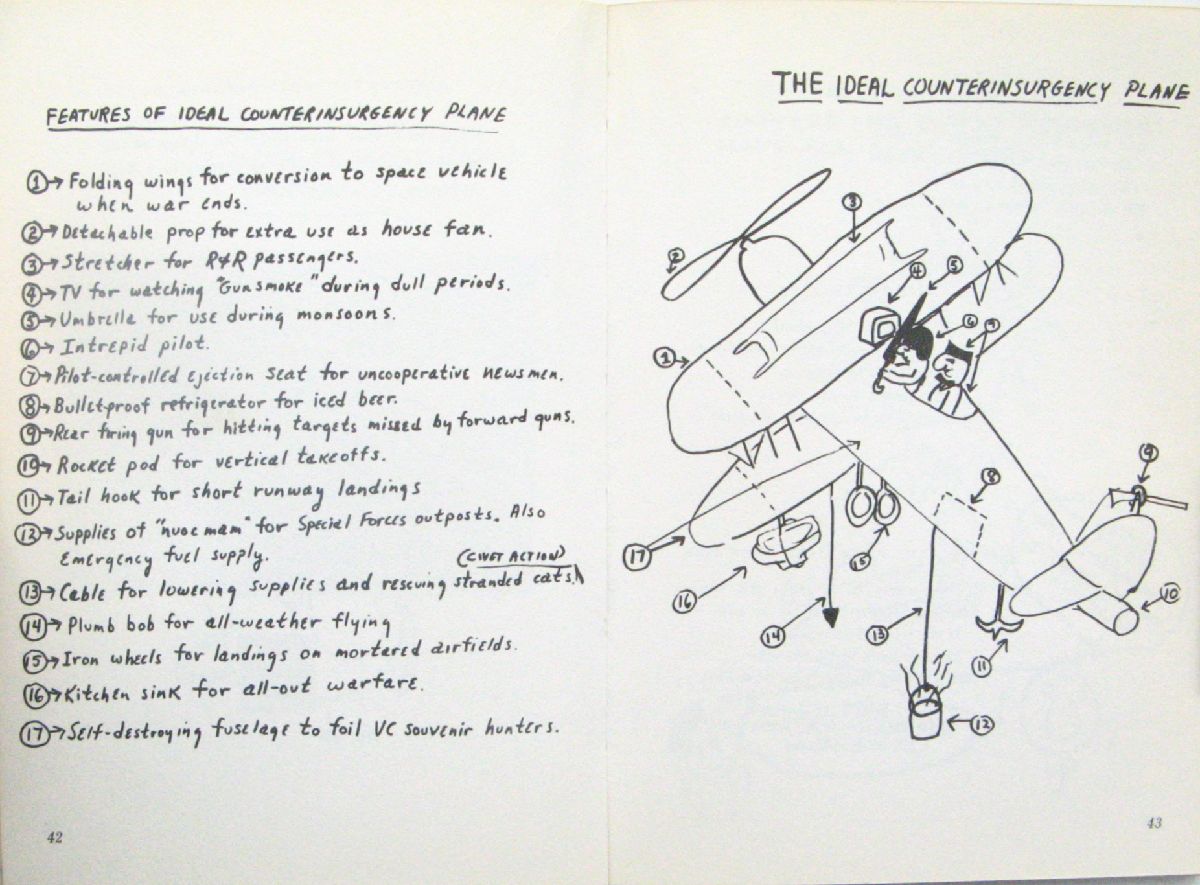 FEATURES OF IDEAL COUNTERINSURGENCY PLANE
①→ Folding wings for conversion to space vehicle
when war ends.
②→ Detachable prop for extra use as house fan.
③→ Stretcher for R&R passengers.
④→ TV for watching "Gunsmoke" during dull periods.
⑤→ Umbrella for use during monsoons.
⑥→ Intrepid pilot.
⑦→ Pilot-controlled ejection seat for uncooperative newsmen.
⑧→ Bullet-proof refrigerator for iced beer.
⑨→ Rear firing gun for hitting targets missed by forward guns.
⑩→ Rocket pod for vertical takeoffs.
⑪→ Tail hook for short runway landings
⑫→ Supplies of "nuoc mam" for Special Forces outposts. Also
Emergency fuel supply.
(CIVET ACTION)
⑬→ Cable for lowering supplies and rescuing stranded cats.
⑭→ Plumb bob for all-weather flying
⑮→ Iron wheels for landings on mortared airfields.
⑯→ Kitchen sink for all-out warfare.
⑰→ Self-destroying fuselage to foil VC souvenir hunters.
42
THE IDEAL COUNTERINSURGENCY PLANE
3
2
4
5
6
7
1
9
8
17
15
16
10
14
13
11
12
43